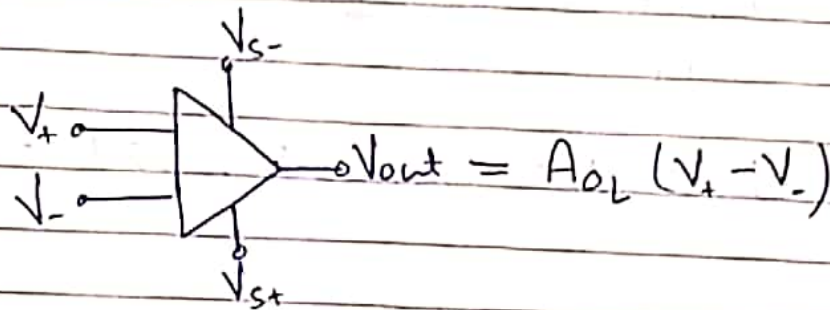 Vs-
V+
Vout = AOL (V+ - V-)
V-
Vs+